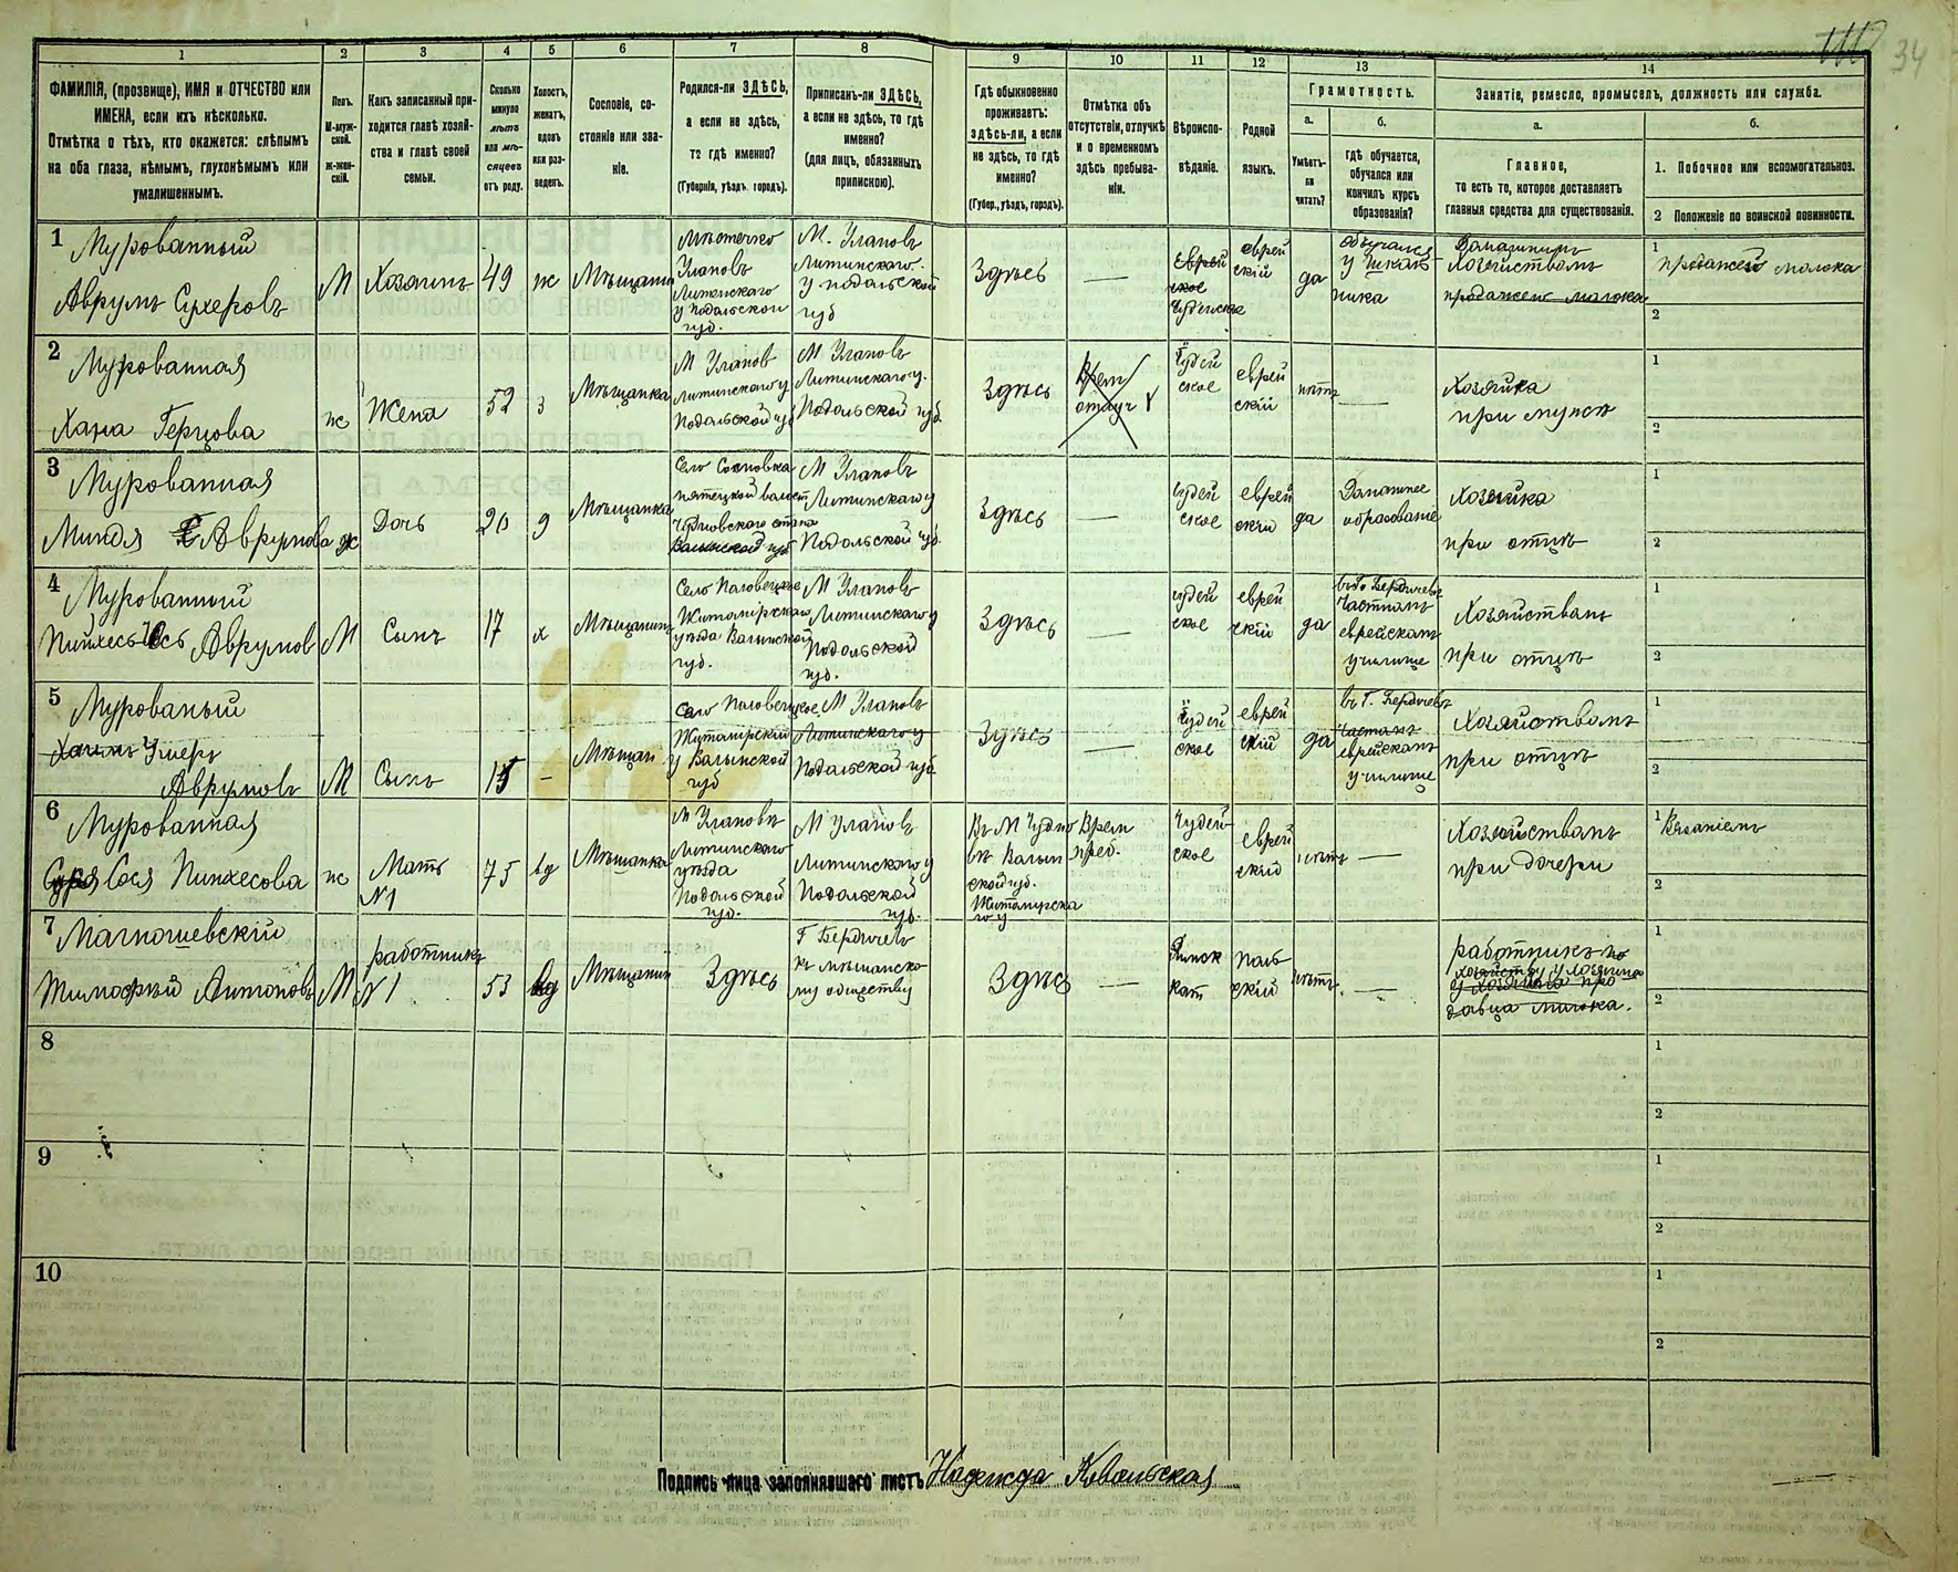 34
1
2
3
4
5
6
7
8
9
10
11
12
13
14
ФАМИЛІЯ, (прозвище), ИМЯ и ОТЧЕСТВО или
ИМЕНА, если ихъ нѣсколько.
Отмѣтка о тѣхъ, кто окажется: слѣпымъ
на оба глаза, нѣмымъ, глухонѣмымъ или
умалишеннымъ.
Полъ.
М-муж-
ской.
ж-жен-
скій.
Какъ записанный при-
ходится главѣ хозяй-
ства и главѣ своей
семьи.
Сколько
минуло
лѣтъ
или мѣ-
сяцевъ
отъ роду.
Холостъ,
женатъ,
вдовъ
или раз-
веденъ.
Сословіе, со-
стояніе или зва-
ніе.
Родился-ли ЗДѢСЬ,
а если не здѣсь,
то гдѣ именно?
(Губернія, уѣздъ, городъ).
Приписанъ-ли ЗДѢСЬ,
а если не здѣсь, то гдѣ
именно?
(для лицъ, обязанныхъ
припискою).
Гдѣ обыкновенно
проживаетъ:
здѣсь-ли, а если
не здѣсь, то гдѣ
именно?
(Губер., уѣздъ, городъ).
Отмѣтка объ
отсутствіи, отлучкѣ
и о временномъ
здѣсь пребыва-
ніи.
Вѣроиспо-
вѣданіе.
Родной
языкъ.
Грамотность.
а.
Умѣетъ-
ли
читать?
б.
гдѣ обучается,
обучался или
кончилъ курсъ
образованія?
Занятіе, ремесло, промыселъ, должность или служба.
а.
Главное,
то есть то, которое доставляетъ
главныя средства для существованія.
б.
1. Побочное или вспомогательное.
2 Положеніе по воинской повинности.
1
Мурованный
Аврумъ Сухеровъ
М
Хозяинъ
49
ж
Мѣщанин
Мѣстечко
Улановъ
Литинскаго
у Подольской
губ.
М. Улановъ
Литинскаго
у Подольской
губ
Здѣсь
—
Еврей
ское
Іудейское
еврей
скій
да
обучался
у школь
ника
Домашнимъ
Хозяйствомъ
продажею молока
1
продажею молока
2
2
Мурованная
Хана Герцова
ж
Жена
52
з
Мѣщанка
М Улановъ
Литинскаго у
Подольской губ
М Улановъ
Литинскаго у.
Подольской губ.
Здѣсь
Врем
отлуч
Іудей
ское
еврей
скій
нѣтъ
—
Хозяйка
при мужѣ
1
2
3
Мурованная
Миндя Аврумова
ж
Дочь
20
д
Мѣщанка
Село Сосновка
Волынской губ
М Улановъ
Литинскаго у
Подольской губ.
Здѣсь
—
іудей
ское
еврей
скій
да
Домашнее
образование
Хозяйка
при отцѣ
1
2
4
Мурованный
Пинхесъ Іось Аврумов
М
Сынъ
17
х
Мѣщанинъ
Село Половецкое
Житомірскаго
уѣзда Волынской
губ.
М Улановъ
Литинскаго у
Подольской
губ.
Здѣсь
—
іудей
ское
еврей
скій
да
въ Г. Бердичевѣ
Частномъ
еврейскомъ
училище
Хозяйствомъ
при отцѣ
1
2
5
Мурованый
Хаимъ Ушеръ
Аврумовъ
М
Сынъ
15
—
Мѣщан
Село Половецкое
Житомірскій
у Волынской
губ
М Улановъ
Литинскаго у
Подольской губ
Здѣсь
—
Іудей
ское
еврей
скій
да
въ Г. Бердичевѣ
Частномъ
еврейскомъ
училище
Хозяйствомъ
при отцѣ
1
2
6
Мурованная
Сося Пинхесова
ж
Мать
№1
75
вд
Мѣщанка
М Улановъ
Литинскаго
уѣзда
Подольской
губ.
М Улановъ
Литинскаго у
Подольской
губ.
Въ М Чудно
въ Волын
ской губ.
Житомирска
го у
Врем
преб.
Іудей
ское
еврей
скій
нѣтъ
—
Хозяйствомъ
при дочери
1
Вязаніемъ
2
7
Магношевскій
Тимофѣй Антоновъ
М
работникъ
№1
53
вд
Мѣщанин
Здѣсь
Г Бердичевъ
къ мѣщанско
му обществу
Здѣсь
—
Римск
кат
поль
скій
нѣтъ
—
работникъ по
хозяйству у хозяина
у хозяина про
давца молока.
1
2
8
1
2
9
1
2
10
1
2
Подпись лица заполнявшаго листъ Надежда Ковальская